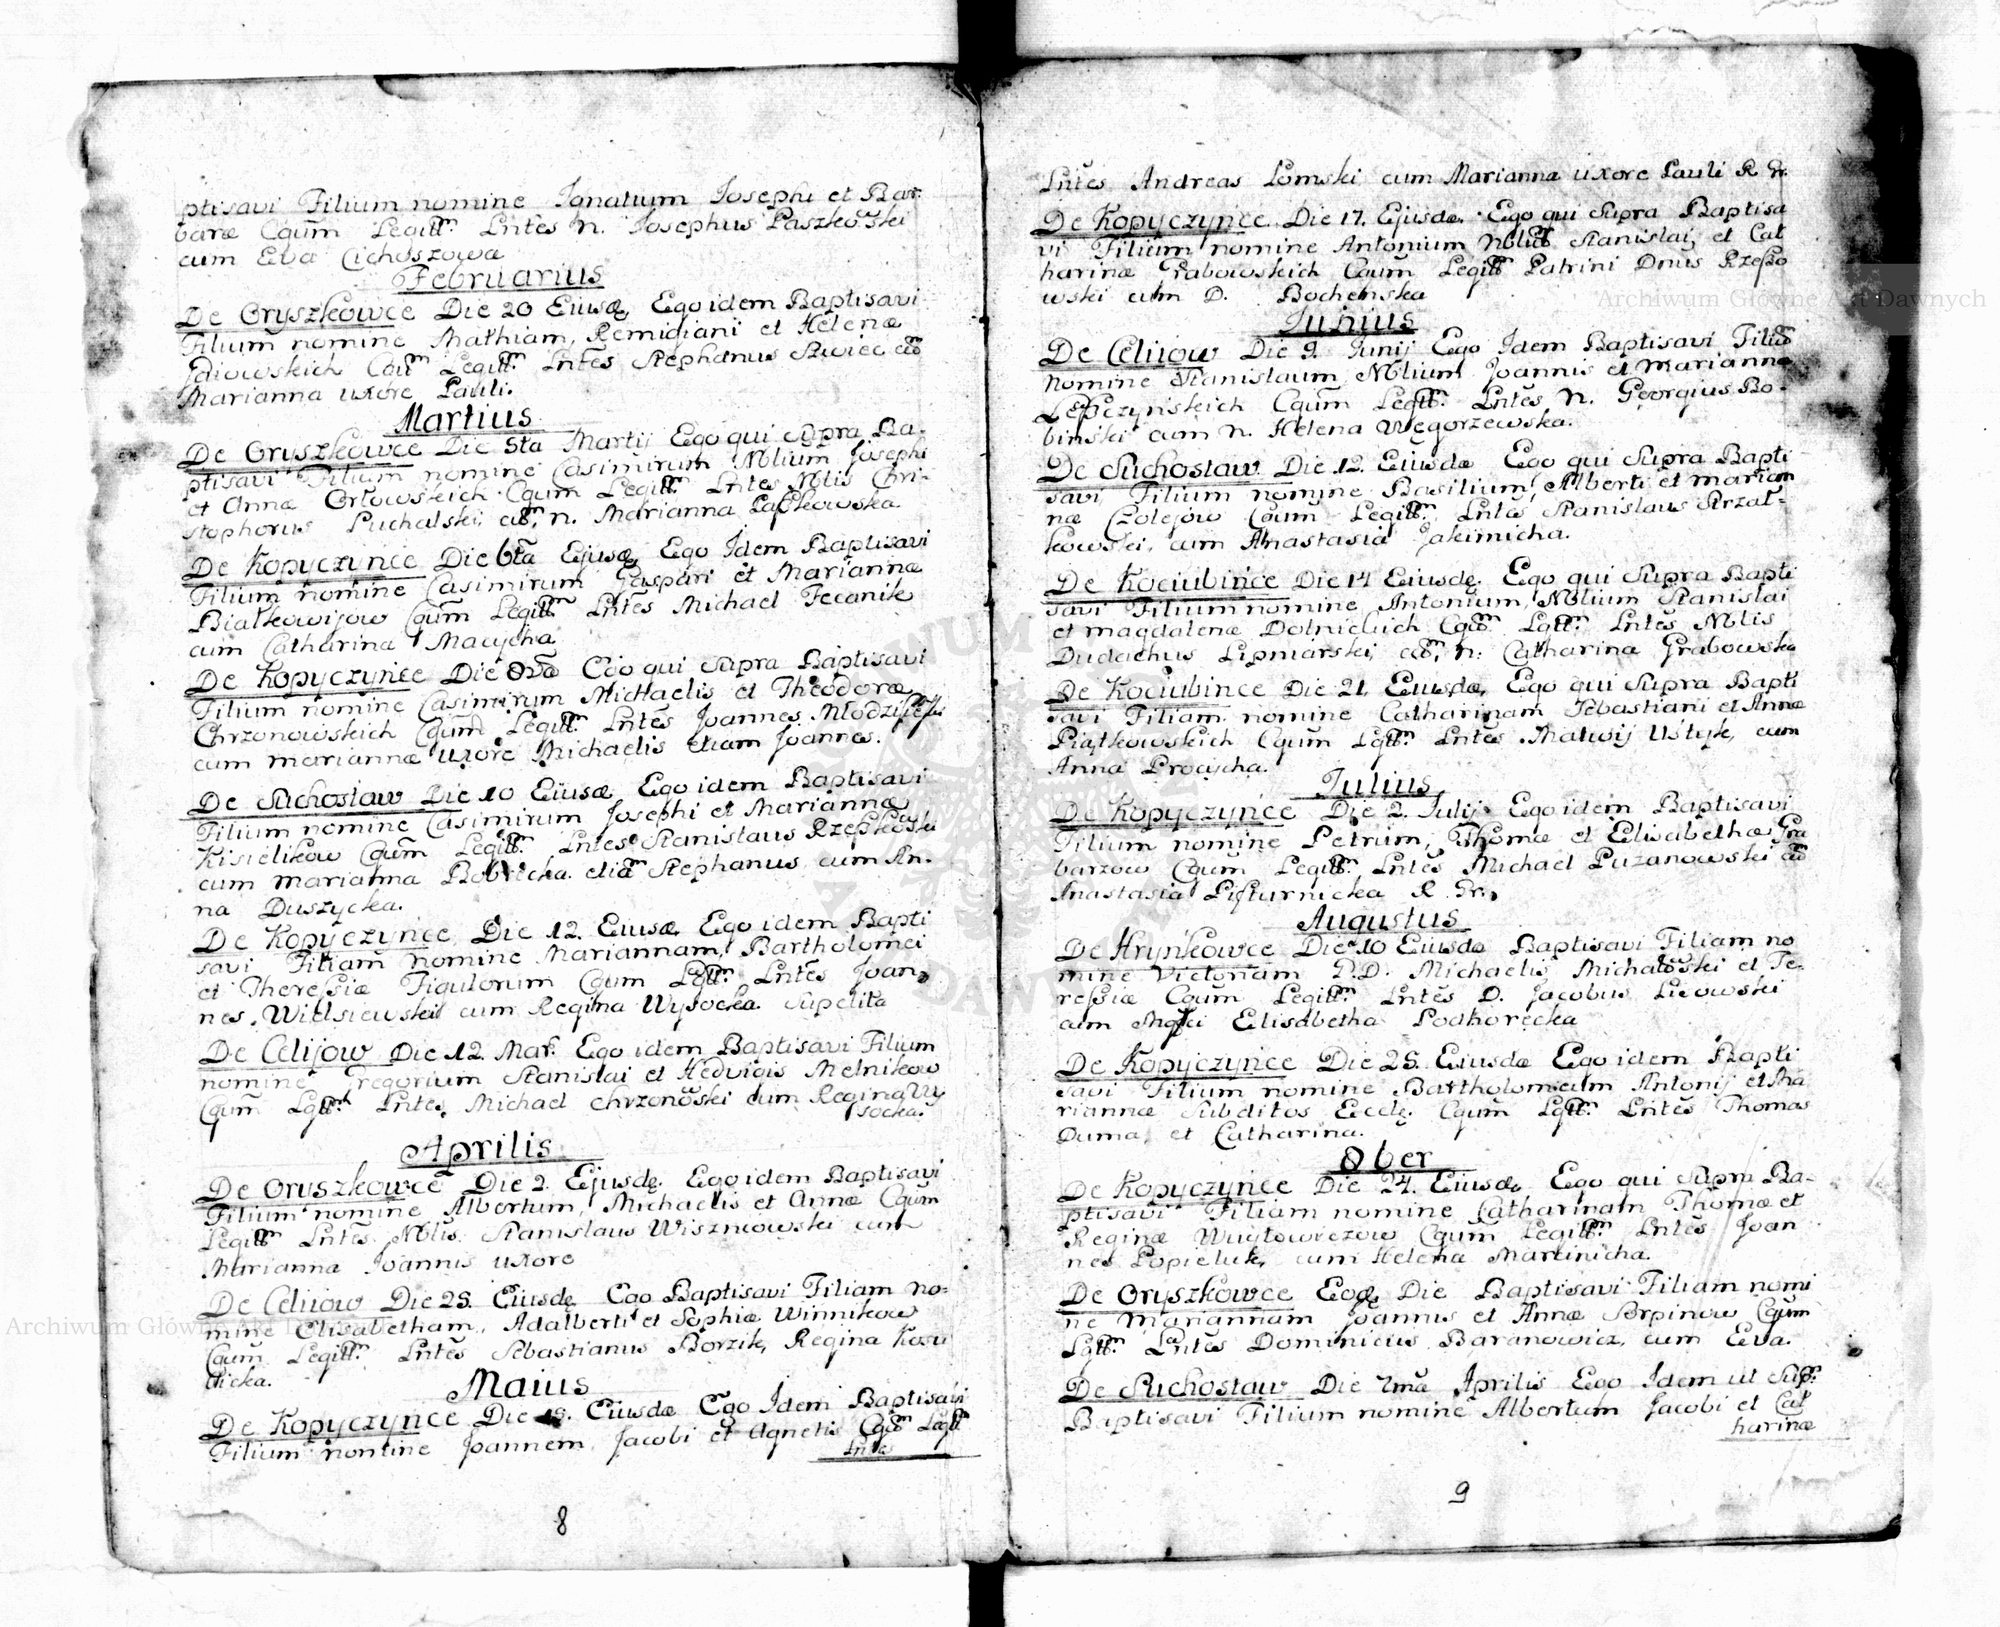 ptisavi Filium nomine Ignatium Josephi et Bar
baræ Cgum Legittm Lntes n. Josephus Paszkowski
cum Eva Cichoszowa
Februarius
De Oryszkowce Die 20 Eiusdæ Ego idem Baptisavi
Filium nomine Mathiam, Remigiani et Helenæ
Marianna uxore Pauli.
Martius
De Oryszkowce Die 5ta Martij Ego qui supra Ba-
ptisavi Filium nomine Casimirum Nblium Josephi
et Annæ Orłowskich Cgum Legittm Lntes Nblis Chri-
stophorus Puchalski, cum n. Marianna Paszkowska
De Kopyczynce Die 6ta Ejusdæ Ego Idem Baptisavi
Filium nomine Casimirum Gaspari et Mariannæ
Białkowijow Cgum Legittm Lntes Michael Fecanik
cum Catharina Macycha
De Kopyczynce Die 8va Ego qui supra Baptisavi
Filium nomine Casimirum Michaelis et Theodoræ
Chrzonowskich Cgum Legittm Lntes Joannes
cum mariannæ uxore Michaelis etiam Joannes.
De Suchostaw Die 10 Eiusdæ Ego idem Baptisavi
Filium nomine Casimirum Josephi et Mariannæ
Kisielikow Cgum Legittm Lntes Stanislaus Rzepkowski
cum marianna etiam Stephanus cum An-
na Duszycka.
De Kopyczynce Die 12. Eiusdæ Ego idem Bapti
savi Filiam nomine Mariannam, Bartholomei
et Theressiæ Figulorum Cgum Lgttm Lntes Joan-
nes cum Regina Wysocka Supelita
De Celijow Die 12. Mar. Ego idem Baptisavi Filium
nomine Gregorium Stanislai et Hedvigis Melnikow
Cgum Lgttm Lntes Michael chrzonowski cum Regina Wy
socka.
Aprilis
De Oryszkowce Die 2. Ejusdę. Ego idem Baptisavi
Filium nomine Albertum, Michaelis et Annæ Cgum
Legittm Lntes Nblis. Stanislaus Wiszniowski cum
Marianna Joannis uxore
De Celijow Die 25. Eiusdę Ego Baptisavi Filiam no-
mine Elisabetham, Adalberti et Sophiæ Winnikow
Cgum Legittm Lntes Sebastianus Borzik, Regina Kozu
Maius
De Kopyczynce Die Eiusdæ Ego Idem Baptisavi
Filium nomine Joannem Jacobi et Agnetis Cgum Lgttm
Lntes
8
Lntes Andreas Łomski cum Marianna uxore Pauli R Gr.
De Kopyczynce Die 17. Ejusdæ. Ego qui supra Baptisa
vi Filium nomine Antonium Stanislai et Cat
harinæ Grabowskich Cgum Legittm Patrini Dnus Rzepko
wski cum D. Bochenska
Junius
De Celijow Die 9. Junij Ego Idem Baptisavi Filium
nomine Stanislaum, Nblium Joannis et Mariannæ
Lepczynskich Cgum Legttm Lntes n. Georgius Bo-
binski cum n. Helena Węgorzewska.
De Suchostaw Die 12. Eiusdæ Ego qui supra Bapti
savi, Filium nomine Basilium, Alberti et marian
næ Czolejow Cgum Legittm Lntes Stanislaus Strzał-
kowski, cum Anastasia Jakimicha.
De Kociubince Die 14 Eiusdę. Ego qui supra Bapti
savi Filium nomine Antonium, Nblium Stanislai
et magdalenæ Dolnickich Cgum Lgttm Lntes Nblis
Dudachus Lipniarski, cum n: Catharina Grabowska
De Kociubince Die 21, Eiusdæ, Ego qui supra Bapti
savi Filiam nomine Catharinam Sebastiani et Annæ
Piątkowskich Cgum Lgttm Lntes Matwij Ustyk, cum
Anna Procycha.
Julius
De Kopyczynce Die 2. Julij Ego idem Baptisavi
Filium nomine Petrum, Thomæ et Elisabethæ Gra
barzow Cgum Legittm Lntes Michael Puzanowski cum
Anastasia R Gr.
Augustus
De Hrynkowce Die 10 Eiusdæ Baptisavi Filiam no
mine Victoriam D.D. Michaelis Michałowski et Te-
ressiæ Cgum Legittm Lntes D. Jacobus Licowski
cum Elisabetha Podhorecka
De Kopyczynce Die 25. Eiusdæ Ego idem Bapti
savi Filium nomine Bartholomeum Antonij et Ma
riannæ Subditos Eccle. Cgum Lgttm Lntes Thomas
Duma, et Catharina.
8ber
De Kopyczynce Die 24. Eiusdæ Ego qui supra Ba-
ptisavi Filiam nomine Catharinam Thomæ et
Reginæ Cgum Legittm Lntes Joan
nes Popieluk, cum Helena Martinicha.
De Oryszkowce Eodę Die Baptisavi Filiam nomi
ne Mariannam Joannis et Annæ Serpinow Cgum
Lgttm Lntes Dominicus Baranowicz cum Eva.
De Suchostaw Die 7ma Aprilis Ego Idem ut Supr
Baptisavi Filium nomine Albertum Jacobi et Cat
harinæ
9
Archiwum Główne Akt Dawnych